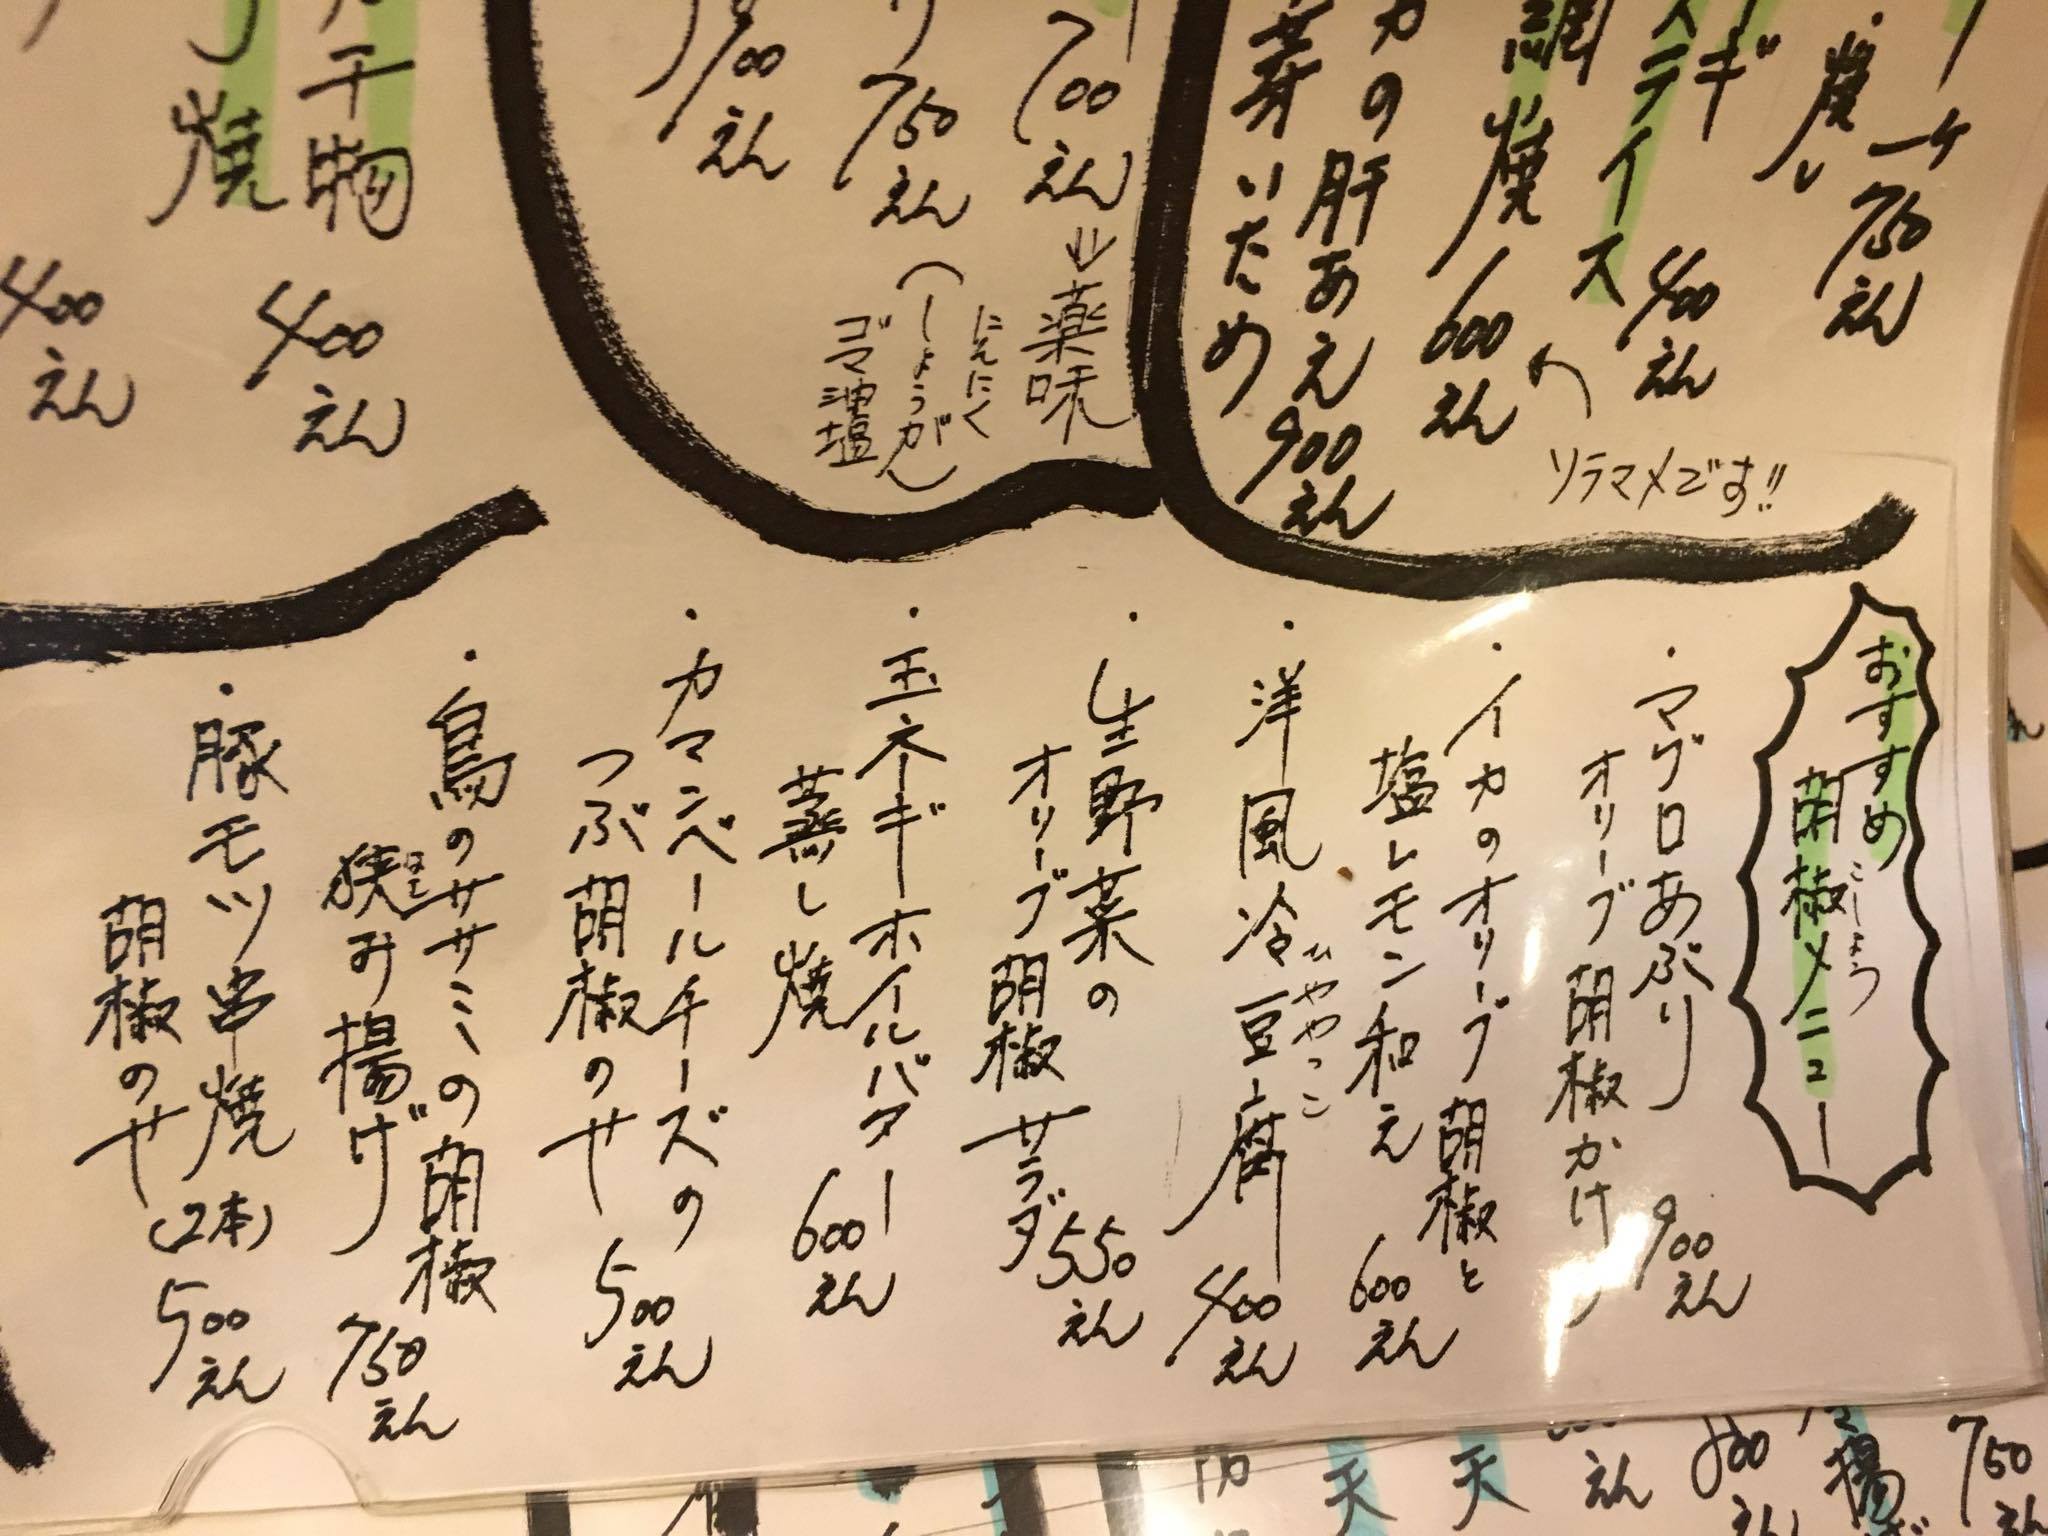 一ケ 750えん
ギ
ステイス 400えん
ソラマメです!!
網焼 600えん
カの肝あえ 900えん
芽いため
700えん
⇒薬味
にんにく
しょうが
ゴマ油塩
750えん
900えん
干物 400えん
焼 400えん
おすすめ
胡椒メニュー
こしょう
・マグロあぶり
オリーブ胡椒かけ 900えん
・イカのオリーブ胡椒と
塩レモン和え 600えん
・洋風冷豆腐 400えん
ひややっこ
・生野菜の
オリーブ胡椒サラダ 550えん
・玉ネギホイルバター
蒸し焼 600えん
・カマンベールチーズの
つぶ胡椒のせ 500えん
・鳥のササミの胡椒
狭み揚げ 750えん
・豚モツ串焼(2本) 500えん
胡椒のせ
750えん
えん
天
天